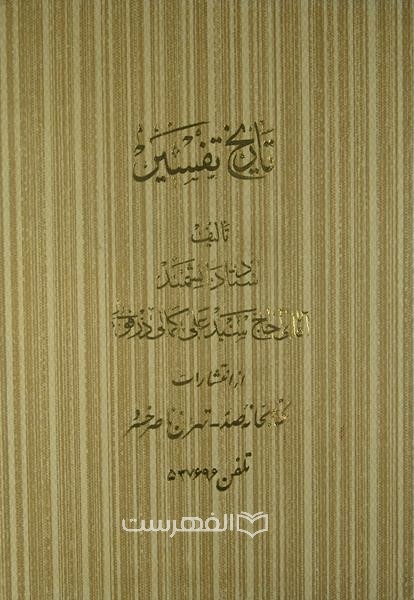 تاریخ تفسیر
تألیف
استاد دانشمند
آقای حاج سید علی کمالی دزفولی
از انتشارات
کتابخانه صدر - تهران ناصر خسرو
تلفن ۵۳۷۶۹۶
الفهرست